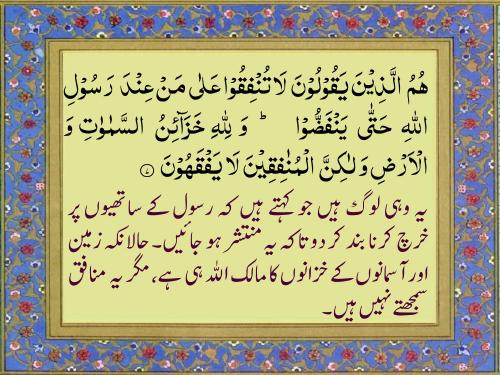 هُمُ الَّذِيْنَ يَقُوْلُوْنَ لَا تُنْفِقُوْا عَلٰى مَنْ عِنْدَ رَسُوْلِ
اللهِ حَتّٰى يَنْفَضُّوْا ؕ وَ لِلّٰهِ خَزَآئِنُ السَّمٰوٰتِ وَ
الْاَرْضِ وَلٰكِنَّ الْمُنٰفِقِيْنَ لَا يَفْقَهُوْنَ ۷
یہ وہی لوگ ہیں جو کہتے ہیں کہ رسول کے ساتھیوں پر
خرچ کرنا بند کر دو تاکہ یہ منتشر ہو جائیں۔ حالانکہ زمین
اور آسمانوں کے خزانوں کا مالک اللہ ہی ہے، مگر یہ منافق
سمجھتے نہیں ہیں۔